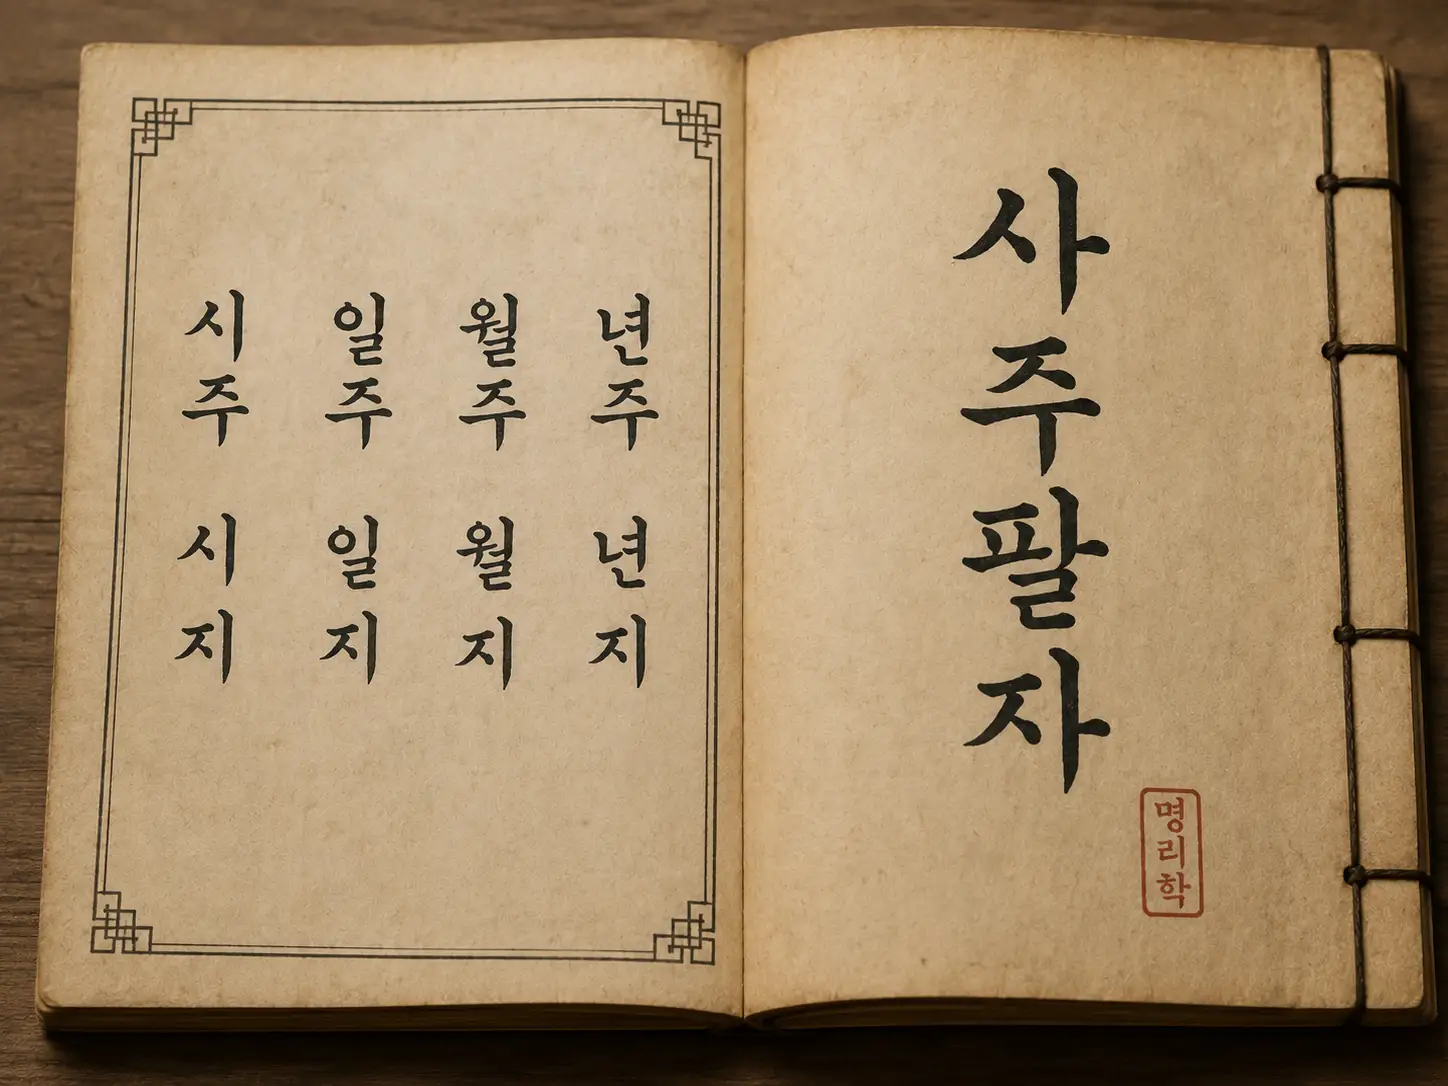 사주팔자
명리학
년주 년지
월주 월지
일주 일지
시주 시지